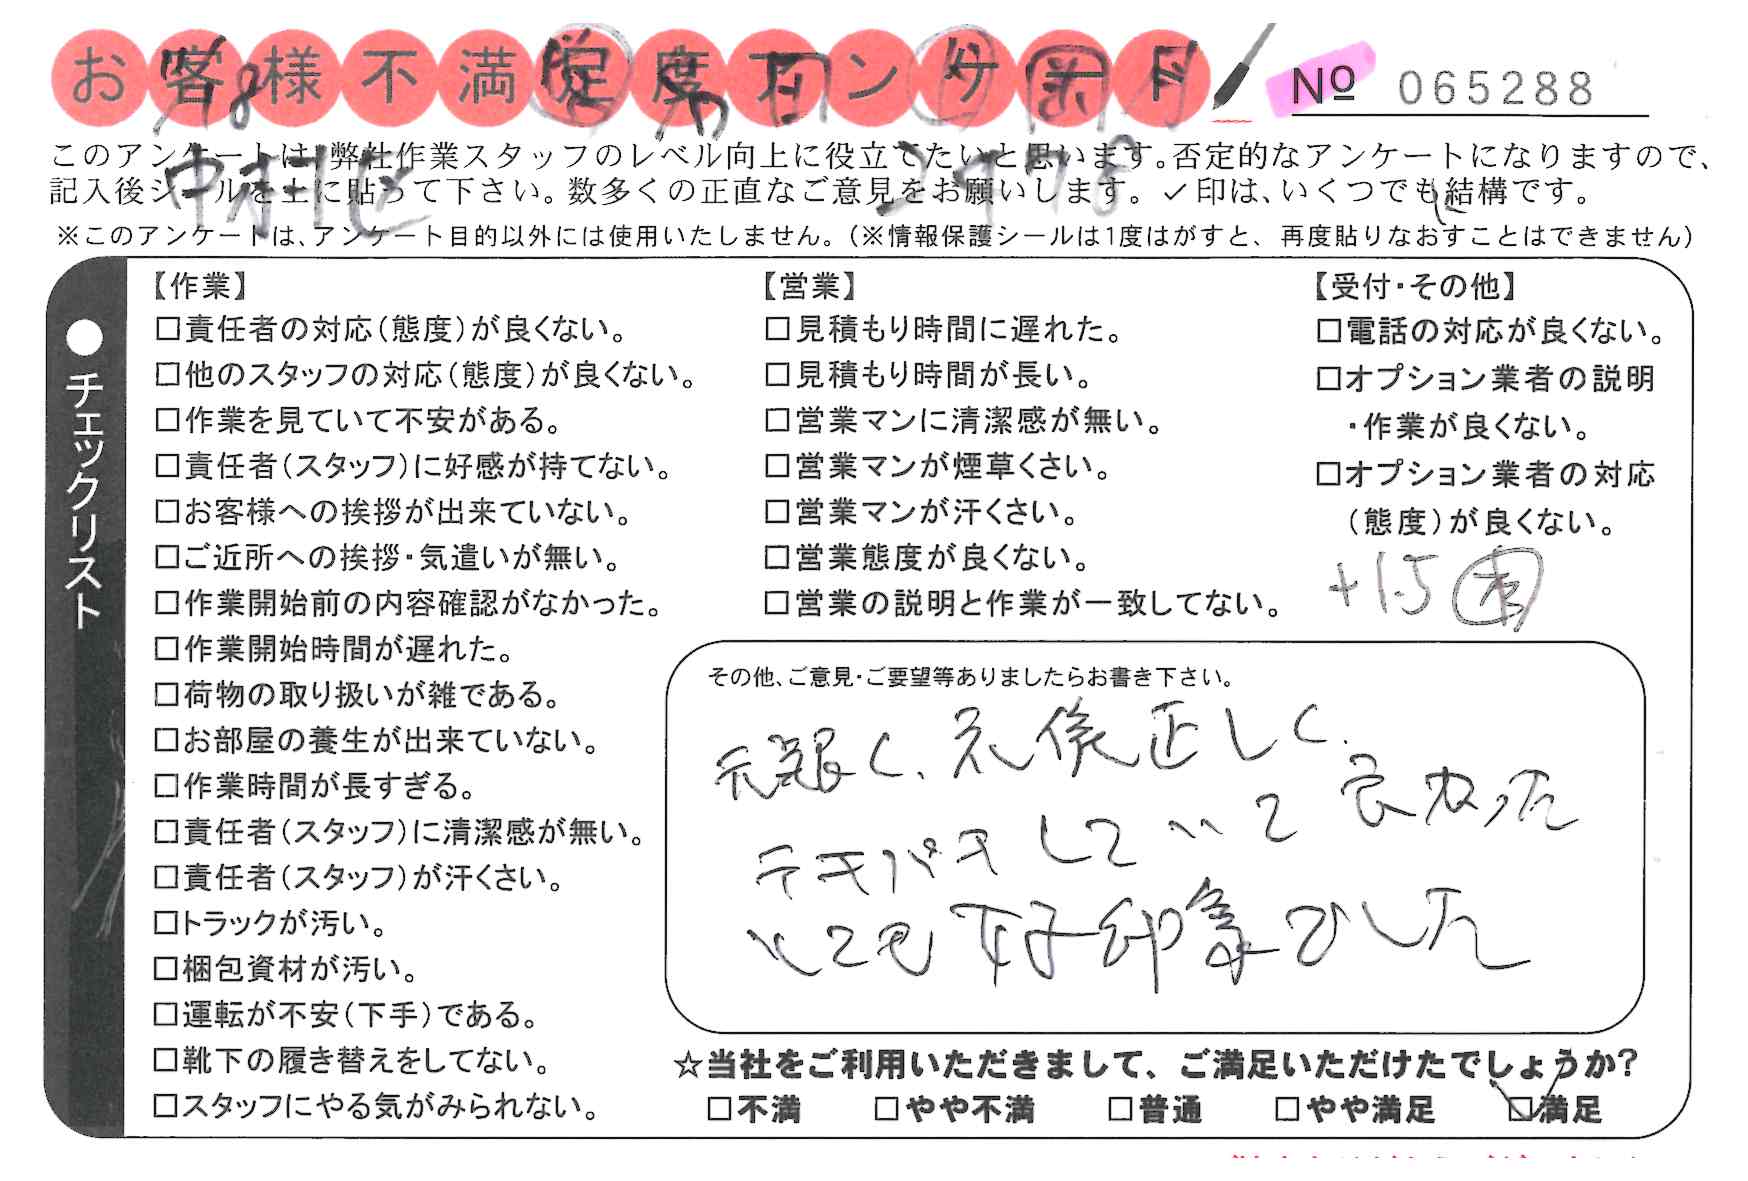 お客様不満足度アンケート
No 065288
このアンケートは、弊社作業スタッフのレベル向上に役立てたいと思います。否定的なアンケートになりますので、
記入後シールを上に貼って下さい。数多くの正直なご意見をお願いします。✓印は、いくつでも結構です。
※このアンケートは、アンケート目的以外には使用いたしません。(※情報保護シールは1度はがすと、再度貼りなおすことはできません)
●チェックリスト
【作業】
□責任者の対応(態度)が良くない。
□他のスタッフの対応(態度)が良くない。
□作業を見ていて不安がある。
□責任者(スタッフ)に好感が持てない。
□お客様への挨拶が出来ていない。
□ご近所への挨拶・気遣いが無い。
□作業開始前の内容確認がなかった。
□作業開始時間が遅れた。
□荷物の取り扱いが雑である。
□お部屋の養生が出来ていない。
□作業時間が長すぎる。
□責任者(スタッフ)に清潔感が無い。
□責任者(スタッフ)が汗くさい。
□トラックが汚い。
□梱包資材が汚い。
□運転が不安(下手)である。
□靴下の履き替えをしてない。
□スタッフにやる気がみられない。
【営業】
□見積もり時間に遅れた。
□見積もり時間が長い。
□営業マンに清潔感が無い。
□営業マンが煙草くさい。
□営業マンが汗くさい。
□営業態度が良くない。
□営業の説明と作業が一致してない。
【受付・その他】
□電話の対応が良くない。
□オプション業者の説明
・作業が良くない。
□オプション業者の対応
(態度)が良くない。
+1.5
その他、ご意見・ご要望等ありましたらお書き下さい。
く、礼儀正しく、
テキパキしていて良かった
とても好印象でした
☆当社をご利用いただきまして、ご満足いただけたでしょうか?
□不満 □やや不満 □普通 □やや満足 ☑満足